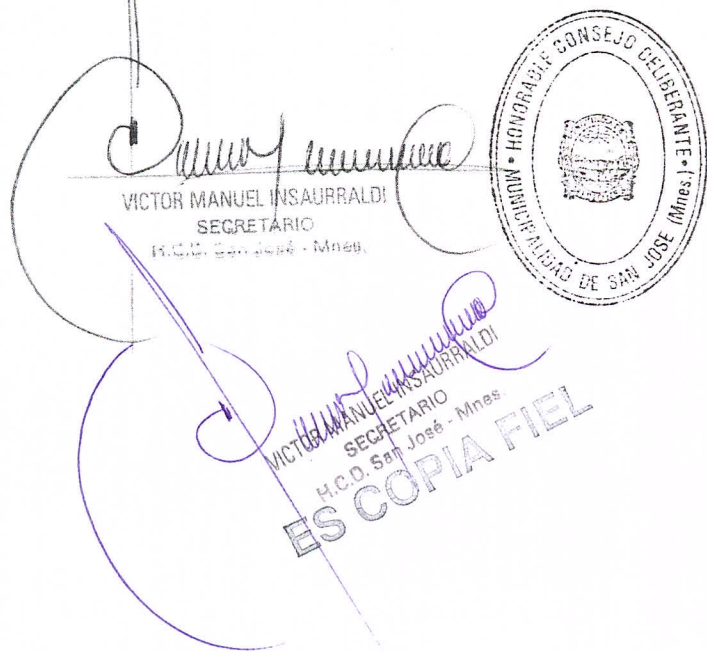 VICTOR MANUEL INSAURRALDI
SECRETARIO
H.C.D. San José - Mnes.
• HONORABLE CONSEJO DELIBERANTE •
MUNICIPALIDAD DE SAN JOSE (Mnes.)
VICTOR MANUEL INSAURRALDI
SECRETARIO
H.C.D. San José - Mnes.
ES COPIA FIEL